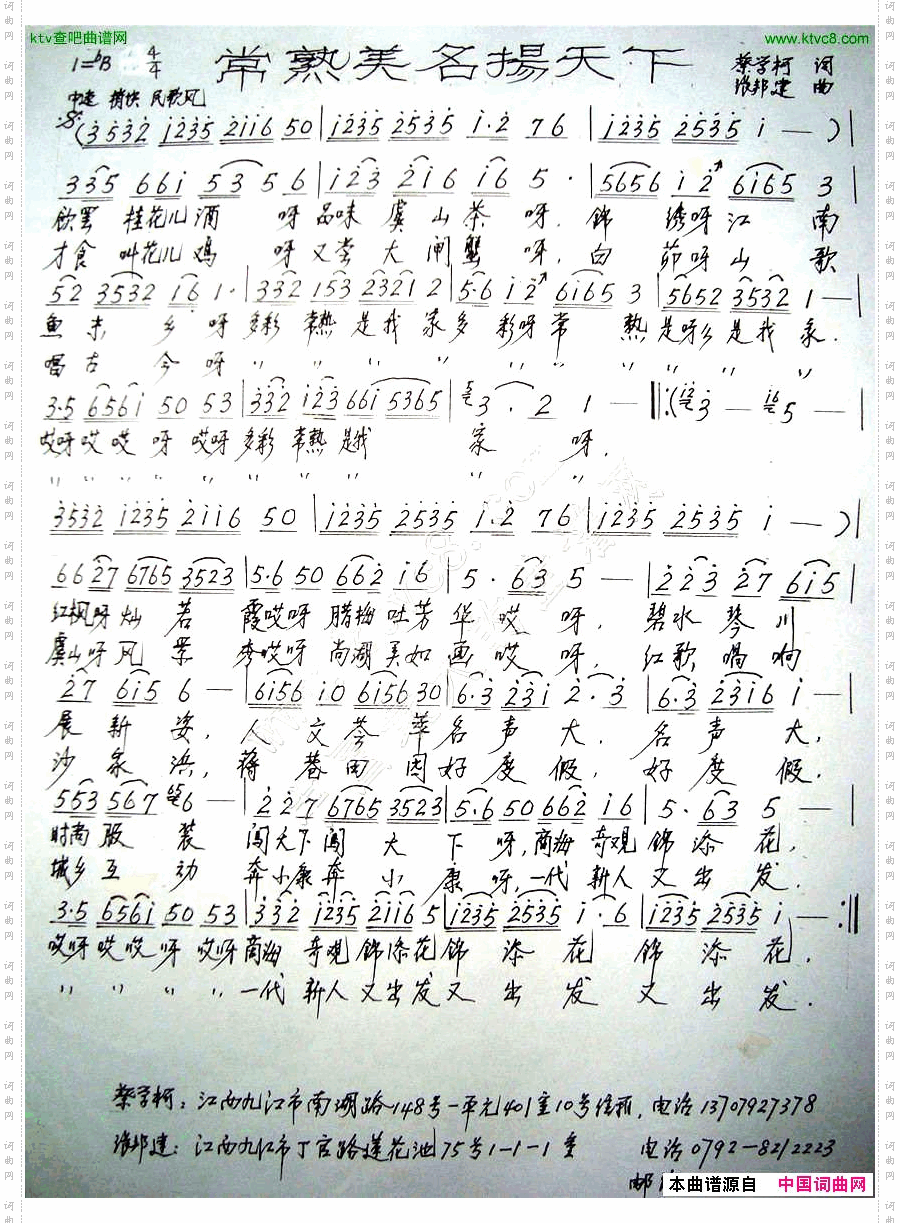 ktv查吧曲谱网
www.ktvc8.com
1=♭B 4/4
常熟美名揚天下
蔡学柯 词
张邦建 曲
中速 稍快 民歌风
(3532 1235 2116 50 | 1235 2535 1·2 76 | 1235 2535 1 — )|
335 661 53 56 | 123 216 16 5· | 5656 12 6165 3 |
饮罢 桂花儿酒 呀 品味 虞山茶 呀. 锦 绣呀江 南
才食 叫花儿鸡 呀 又尝 大闸蟹 呀. 白 茆呀山 歌
52 3532 16 1· | 332 153 2321 2 | 5·6 12 6165 3 | 5652 3532 1 — |
鱼 米, 乡 呀 多彩 常熟 是我 家 多 彩呀 常 熟 是呀么 是我 家.
唱 古 今 呀 〃 〃 〃 〃 〃 〃 〃 〃 〃
3·5 6561 50 53 | 332 123 661 5365 | 3· 2 1 — ‖: ( 3 — 5 — |
哎呀 哎 哎 呀 哎呀 多彩 常熟 是我 家 呀.
〃 〃 〃 〃 〃 〃 〃 〃 〃
3532 1235 2116 50 | 1235 2535 1·2 76 | 1235 2535 1 — )|
66 27 6765 3523 | 5·6 50 662 16 | 5· 63 5 — | 2 23 27 615 |
红枫呀灿 若 霞哎呀 腊梅 吐芳 华 哎 呀, 碧水 琴 川
虞山呀风 景 秀哎呀 尚湖 美如 画 哎 呀, 红歌 唱 响
27 615 6 — | 6156 10 6156 30 | 6·3 231 2·3 | 6·3 2316 1 — |
展 新 姿, 人 文 荟 萃 名 声 大, 名 声 大,
沙 家 浜, 蒋 巷 田 园 好 度 假, 好 度 假,
553 567 6 — | 2 27 6765 3523 | 5·6 50 662 16 | 5· 63 5 — |
时尚 服 装 闯天下 闯 天 下 呀, 商海 奇观 锦 添 花,
城乡 互 动 奔小康 奔 小 康 呀, 一代 新人 又 出 发.
3·5 6561 50 53 | 332 1235 2116 5 | 1235 2535 1·6 | 1235 2535 1 — :‖
哎呀 哎 哎 呀 哎呀 商海 奇观 锦添花 锦 添 花 锦 添 花.
〃 〃 〃 〃 一代 新人 又出发 又 出 发 又 出 发.
蔡学柯: 江西九江市南湖路148号一单元401室10号信箱, 电话 13707927378
张邦建: 江西九江市丁官路莲花池75号1-1-1室 电话 0792-8212223
邮
本曲谱源自 中国词曲网
词曲网